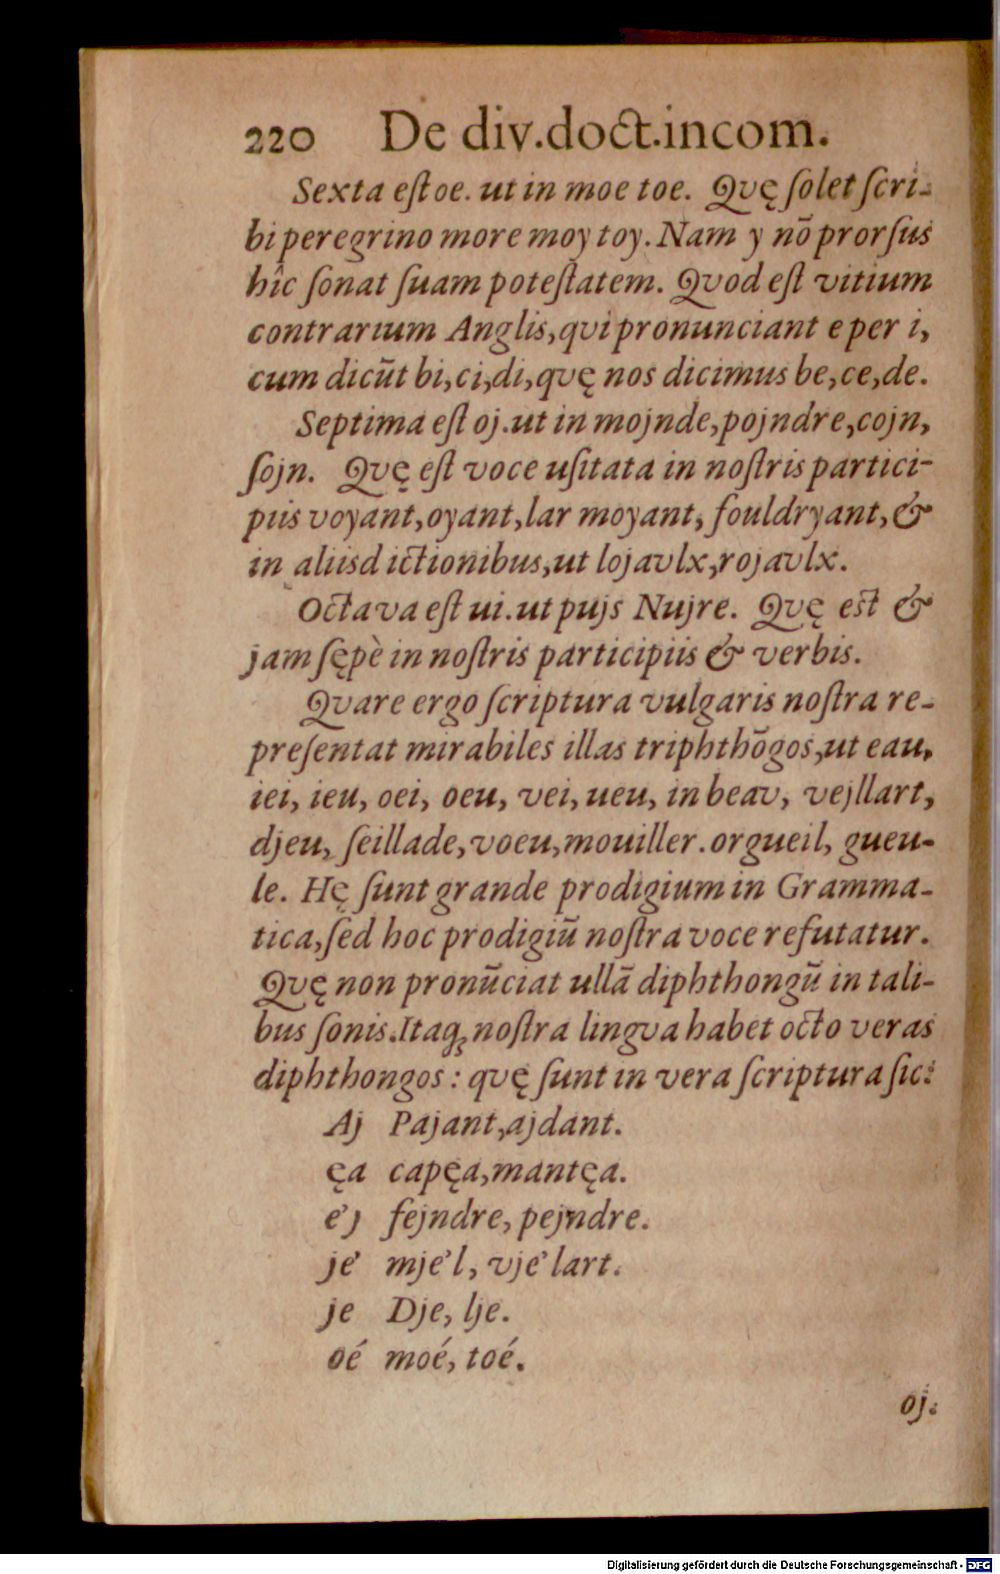 220 De div.doct.incom.
Sexta eſt oe. ut in moe toe. Qvę ſolet ſcri-
bi peregrino more moy toy. Nam y nõ prorſus
hîc ſonat ſuam poteſtatem. Qvod eſt vitium
contrarium Anglis, qvi pronunciant e per i,
cum dicũt bi, ci, di, qvę nos dicimus be, ce, de.
Septima eſt oj. ut in mojnde, pojndre, cojn,
ſojn. Qvę eſt voce uſitata in noſtris partici-
piis voyant, oyant, lar moyant, fouldryant, &
in aliisd ictionibus, ut lojavlx, rojavlx.
Octava eſt ui. ut pujs Nujre. Qvę est &
jam ſępè in noſtris participiis & verbis.
Qvare ergo ſcriptura vulgaris noſtra re-
preſentat mirabiles illas triphthõgos, ut eau,
iei, ieu, oei, oeu, vei, ueu, in beav, vejllart,
djeu, ſeillade, voeu, mouiller. orgueil, gueu-
le. Hę ſunt grande prodigium in Gramma-
tica, ſed hoc prodigiũ noſtra voce refutatur.
Qvę non pronũciat ullã diphthongũ in tali-
bus ſonis. Itaq; noſtra lingva habet octo veras
diphthongos: qvę ſunt in vera ſcriptura ſic:
Aj Pajant, ajdant.
ęa capęa, mantęa.
e'j fejndre, pejndre.
je' mje'l, vje'lart.
je Dje, lje.
oé moé, toé.
oj.
Digitalisierung gefördert durch die Deutsche Forschungsgemeinschaft - DFG